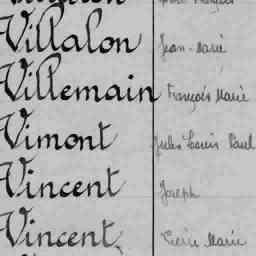 Villalon Jean-Marie
Villemain François Marie
Vimont Jules Louis Paul
Vincent Joseph
Vincent Pierre Marie